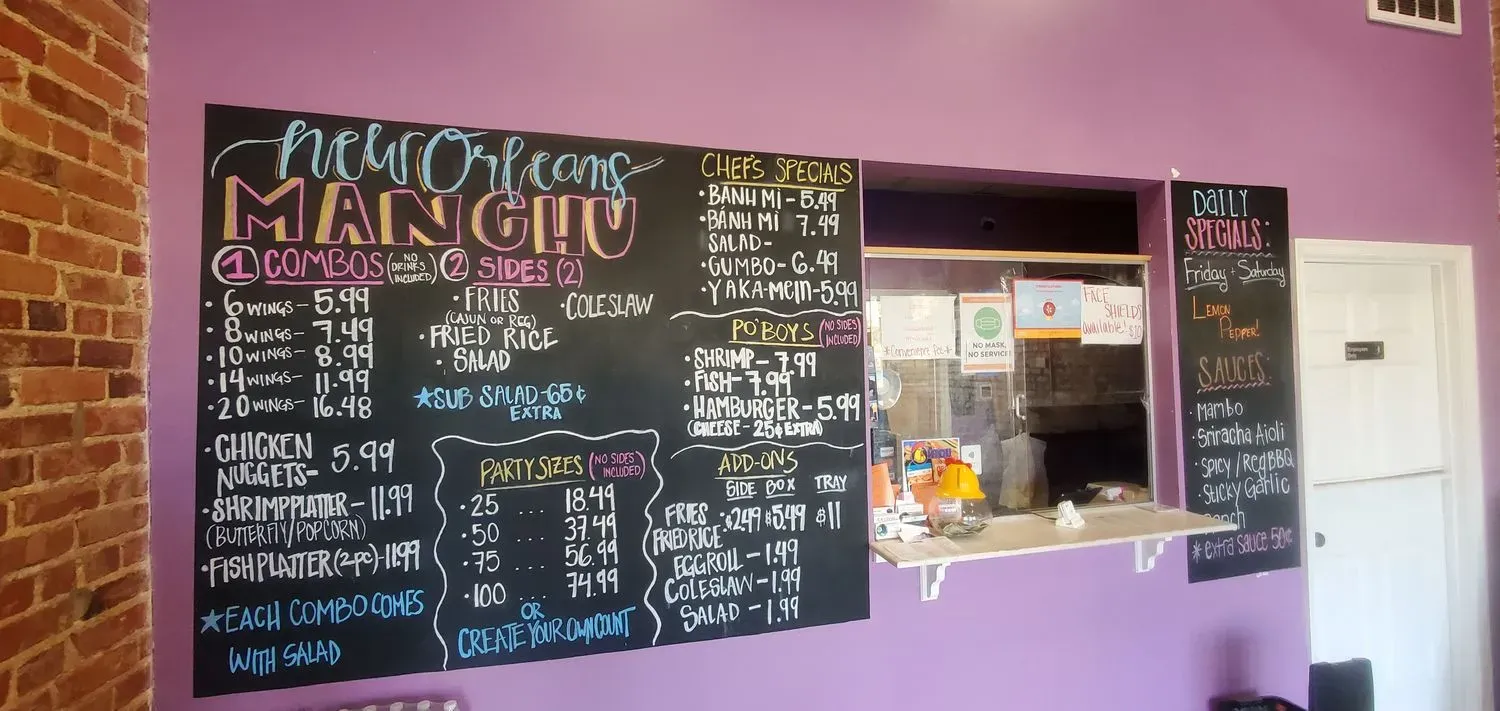 New Orleans
MANCHU
1 COMBOS (NO DRINKS INCLUDED)
• 6 WINGS - 5.99
• 8 WINGS - 7.49
• 10 WINGS - 8.99
• 14 WINGS - 11.99
• 20 WINGS - 16.48
• CHICKEN
NUGGETS - 5.99
• SHRIMP PLATTER - 11.99
(BUTTERFLY/POPCORN)
• FISH PLATTER (2PC) - 11.99
★ EACH COMBO COMES
WITH SALAD
2 SIDES (2)
• FRIES
(CAJUN OR REG)
• FRIED RICE
• SALAD
• COLESLAW
★ SUB SALAD - 65¢
EXTRA
PARTY SIZES (NO SIDES INCLUDED)
• 25 .... 18.49
• 50 .... 37.49
• 75 .... 56.99
• 100 .... 74.99
OR
CREATE YOUR OWN COUNT
CHEF'S SPECIALS
• BÁNH MÌ - 5.49
• BÁNH MÌ 7.49
SALAD -
• GUMBO - 6.49
• YAKA-MEIN - 5.99
PO'BOYS (NO SIDES INCLUDED)
• SHRIMP - 7.99
• FISH - 7.99
• HAMBURGER - 5.99
(CHEESE - 25¢ EXTRA)
ADD-ONS
SIDE BOX TRAY
FRIES
FRIED RICE - $2.49 $5.49 $11
EGGROLL - 1.49
COLESLAW - 1.99
SALAD - 1.99
*Convenience Fee*
NO MASK,
NO SERVICE!
FACE
SHIELDS
available! $10
DAILY
SPECIALS:
Friday + Saturday
LEMON
PEPPER!
SAUCES:
• Mambo
• Sriracha Aioli
• Spicy / Reg BBQ
• Sticky Garlic
* extra sauce 50¢
Employees
Only